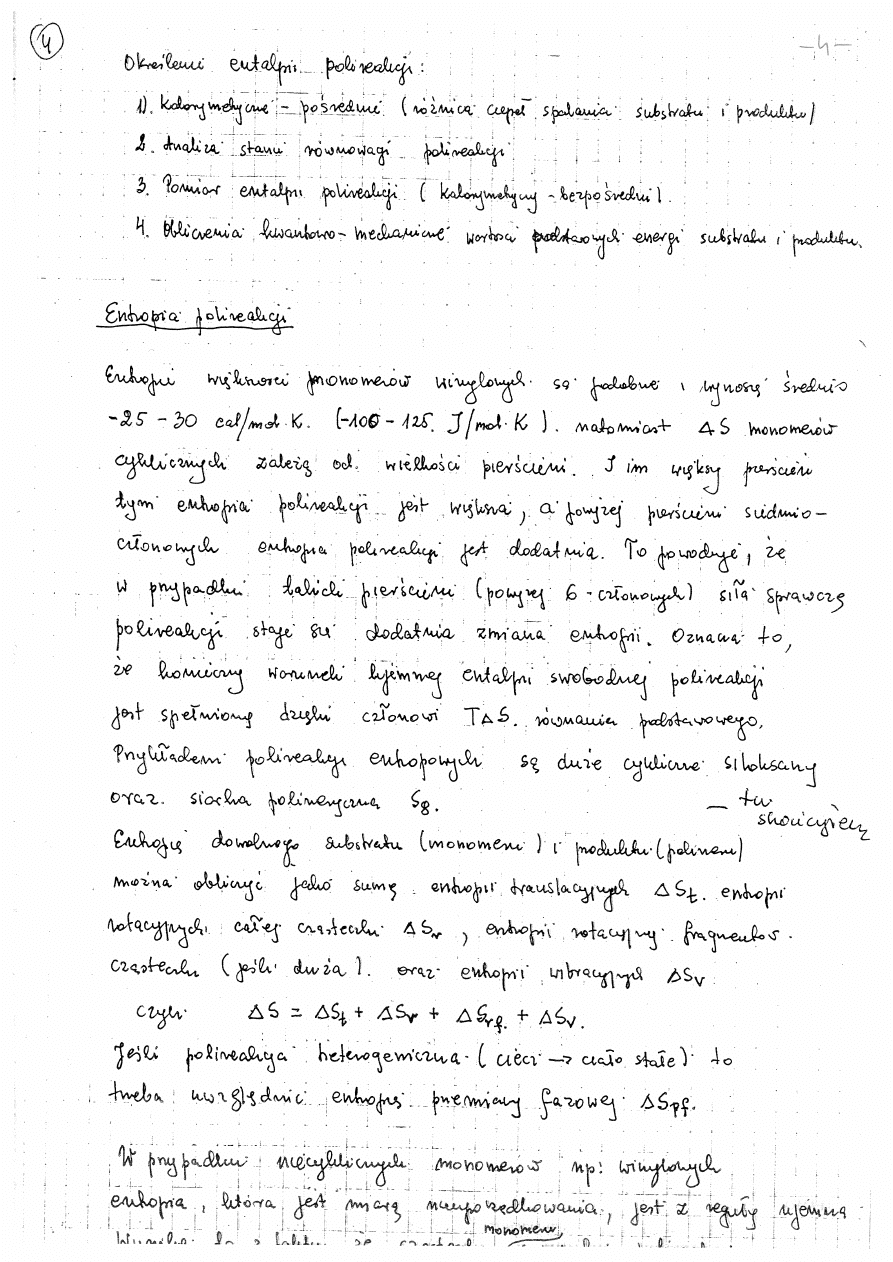 4
-4-
Określenie entalpii polireakcji:
1). Kalorymetryczne - pośrednie (różnica ciepeł spalania substratu i produktu)
2. Analiza stanu równowagi polireakcji
3. Pomiar entalpii polireakcji (Kalorymetryczny - bezpośredni).
4. Obliczenia kwantowo-mechaniczne wartości podstawowych energii substratu i produktu.
Entropia polireakcji
Entropie większości monomerów winylowych są podobne i wynoszą średnio
-25 - 30 cal/mol·K. (-100 - 125. J/mol·K). natomiast ΔS monomerów
cyklicznych zależą od. wielkości pierścieni. I im większy pierścień
tym entropia polireakcji jest większa, a powyżej pierścieni siedmio-
członowych entropia polireakcji jest dodatnia. To powoduje, że
w przypadku takich pierścieni (powyżej 6-członowych) siłą sprawczą
polireakcji staje się dodatnia zmiana entropii. Oznacza to,
że konieczny warunek ujemnej entalpii swobodnej polireakcji
jest spełniony dzięki członowi TΔS. równania podstawowego.
Przykładem polireakcji entropowych są duże cykliczne siloksany
oraz. siarka polimeryczna S8.
— tu
skończyłem
Entropię dowolnego substratu (monomeru) i produktu (polimeru)
można obliczyć jako sumę entropii translacyjnych ΔSt. entropii
rotacyjnych całej cząsteczki ΔSr, entropii rotacyjnej fragmentów.
cząsteczki (jeśli duża). oraz entropii wibracyjnych ΔSv
czyli ΔS = ΔSt + ΔSr + ΔSrf. + ΔSv.
Jeśli polireakcja heterogeniczna (ciecz → ciało stałe) to
trzeba uwzględnić entropię przemiany fazowej ΔSpf.
W przypadku niecyklicznych monomerów np: winylowych
entropia, która jest miarą nieuporządkowania, jest z reguły ujemna
monomeru,